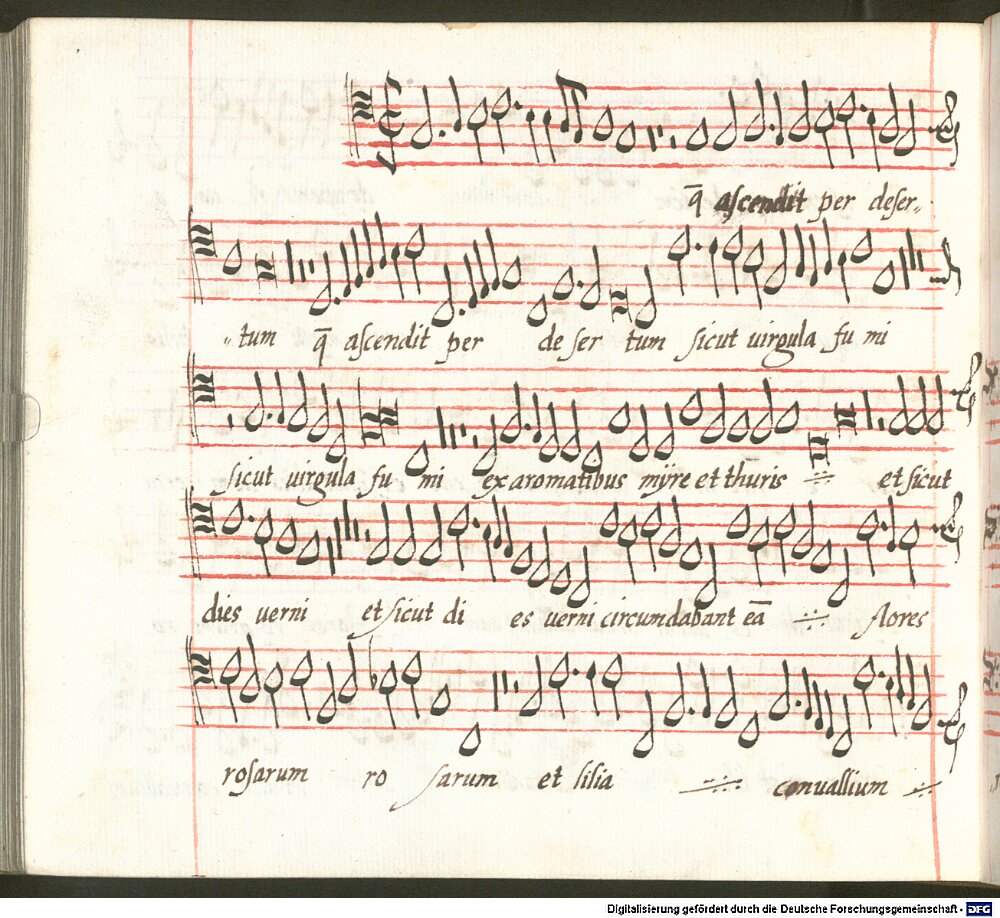 q̄ aſcendit per deſer„
„tum q̄ aſcendit per de ſer tum ſicut uirgula fu mi
ſicut uirgula fu mi ex aromatibus mÿre et thuris et ſicut
dies uerni et ſicut di es uerni circumdabant eā flores
roſarum ro ſarum et lilia conuallium
Digitalisierung gefördert durch die Deutsche Forschungsgemeinschaft - DFG